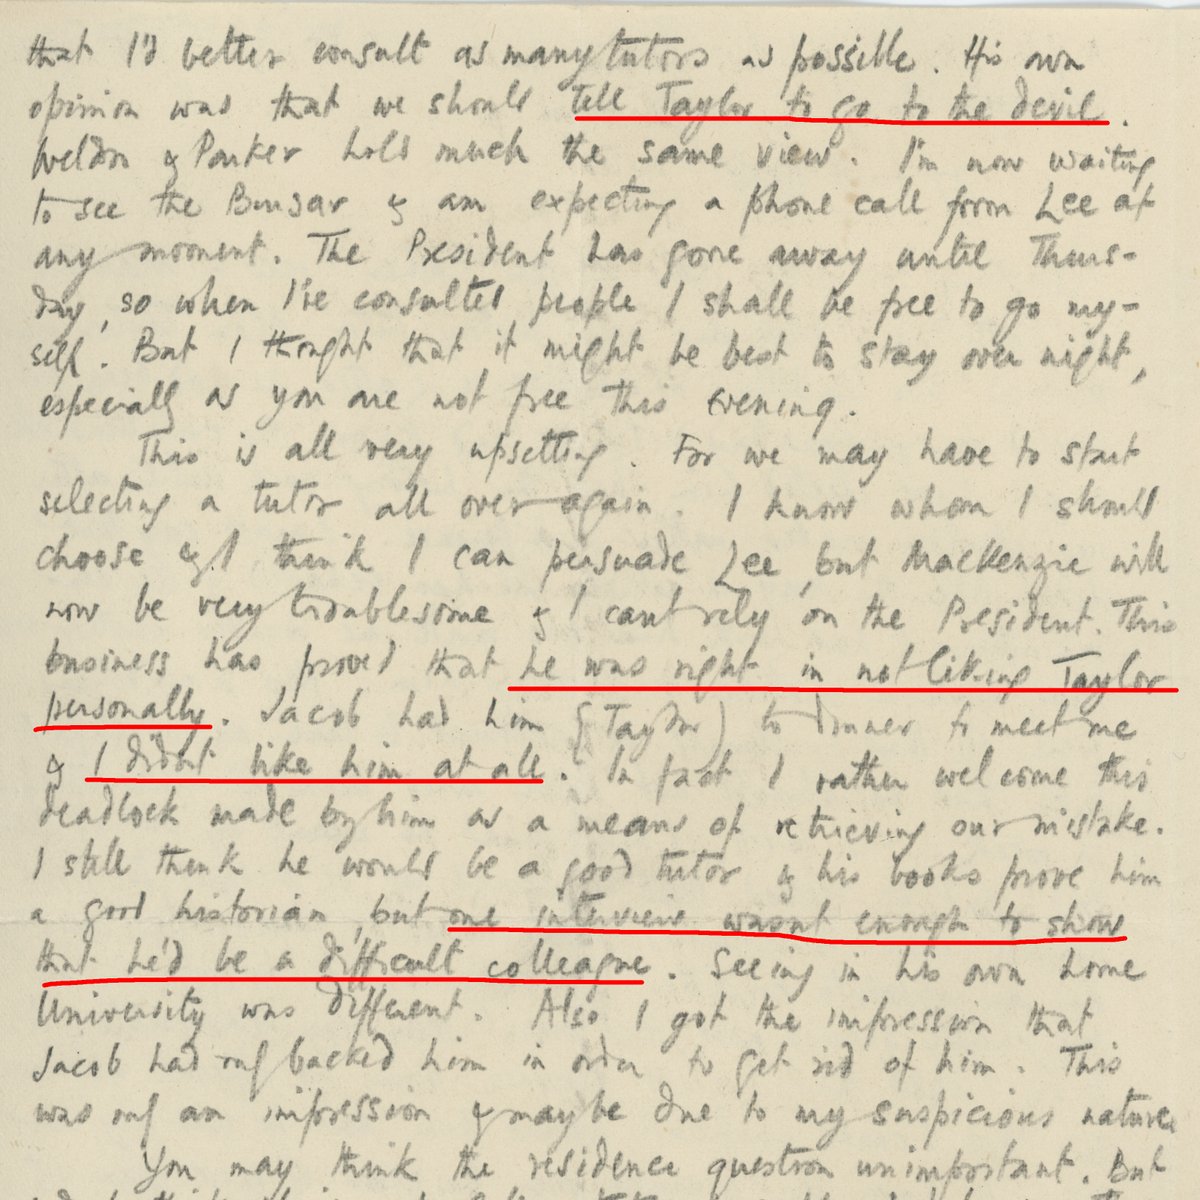 that I'd better consult as many tutors as possible. His own
opinion was that we should tell Taylor to go to the devil.
Weldon & Parker hold much the same view. I'm now waiting
to see the Bursar & am expecting a phone call from Lee at
any moment. The President has gone away until Thurs-
day, so when I've consulted people I shall be free to go my-
self. But I thought that it might be best to stay over night,
especially as you are not free this evening.
This is all very upsetting. For we may have to start
selecting a tutor all over again. I know whom I should
choose & I think I can persuade Lee, but MacKenzie will
now be very troublesome & I cant rely on the President. This
business has proved that he was right in not liking Taylor
personally. Jacob had him (Taylor) to dinner to meet me
& I didnt like him at all. In fact I rather welcome this
deadlock made by him as a means of retrieving our mistake.
I still think he would be a good tutor & his books prove him
a good historian, but one interview wasnt enough to show
that he'd be a difficult colleague. Seeing in his own home
University was different. Also I got the impression that
Jacob had backed him in order to get rid of him. This
was an impression & may be due to my suspicious nature
You may think the residence question unimportant. But